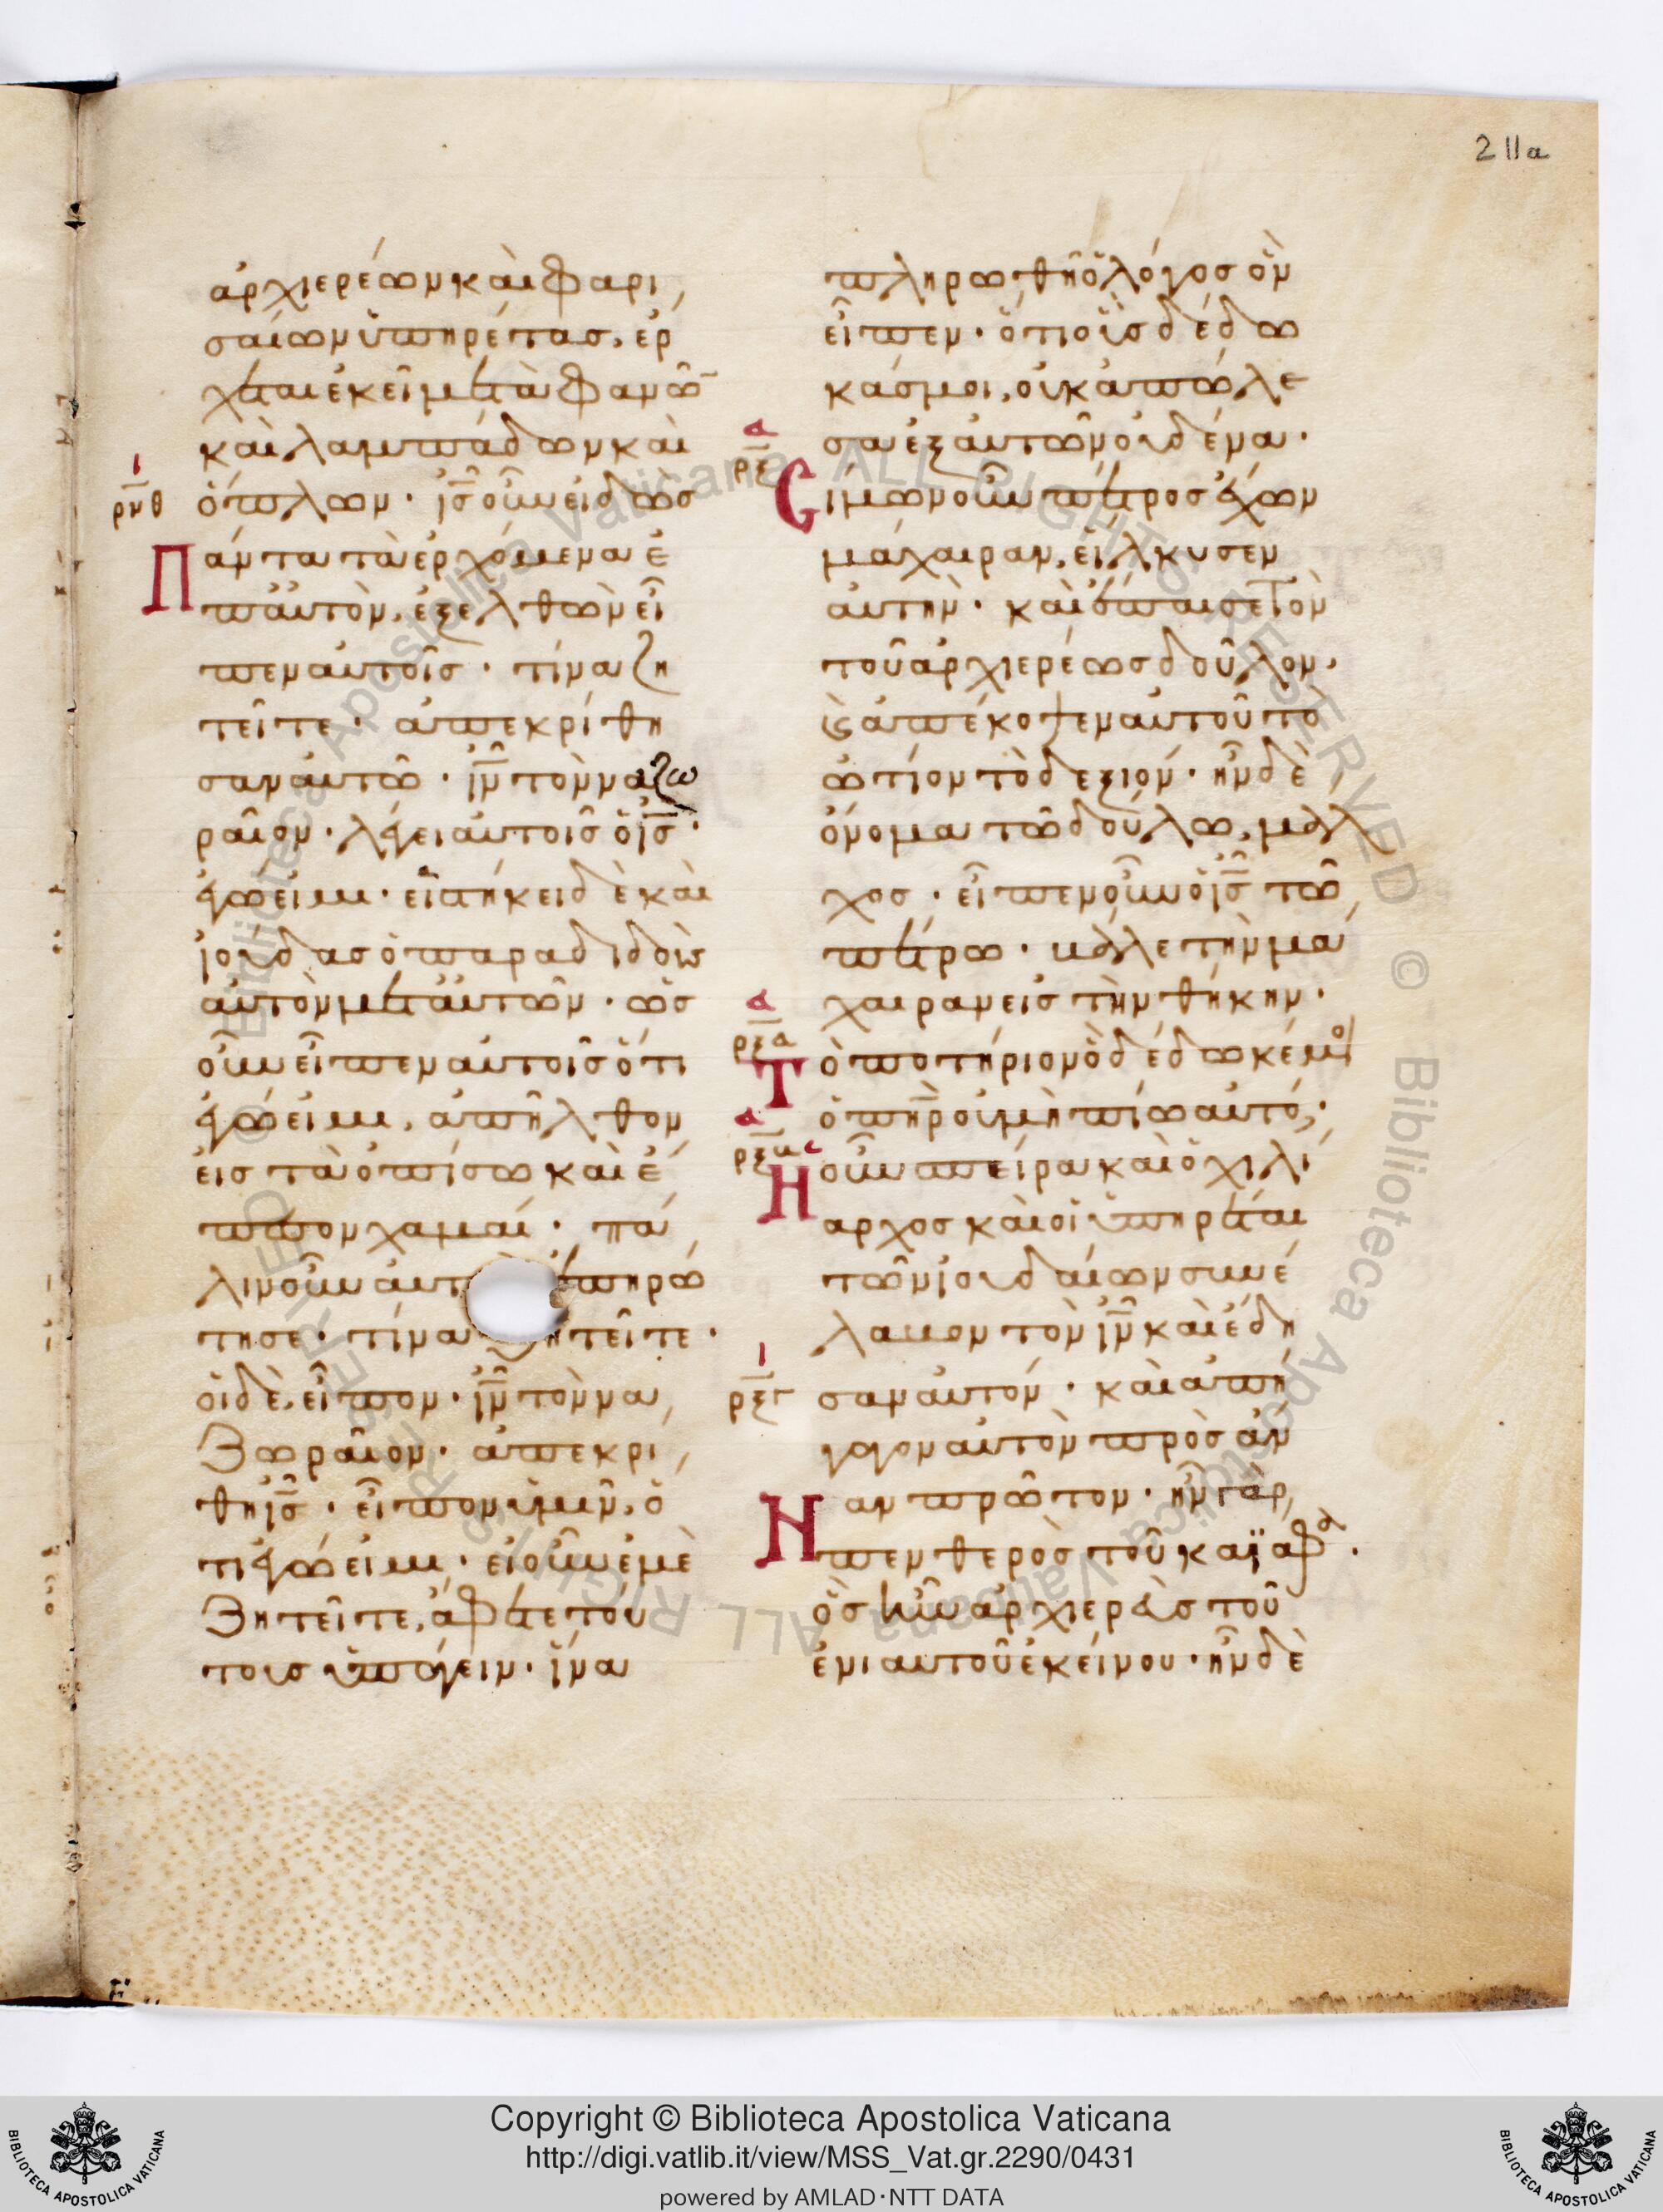 211a
ἀρχιερέων καὶ φαρι
σαίων ὑπηρέτας, ἔρ
χεται ἐκεῖ μετὰ φανῶ̅
καὶ λαμπάδων καὶ
ι
ρνθ
ὅπλων · ι̅ς̅ οὖν εἰδὼς
Πάντα τὰ ἐρχόμενα ἐ
π᾽ αὐτὸν, ἐξελθὼν εἶ
πεν αὐτοῖς · τίνα ζη
τεῖτε · ἀπεκρίθη
σαν αὐτῶ · ι̅ν̅ τὸν ναζω
ραῖον · λέγει αὐτοῖς ὁ ι̅ς̅ ·
ἐγώ εἰμι · εἱστήκει δὲ καὶ
ἰούδας ὁ παραδιδοὺς
αὐτὸν μετ᾽ αὐτῶν · ὡς
οὖν εἶπεν αὐτοῖς ὅτι
ἐγώ εἰμι, ἀπῆλθον
εἰς τὰ ὀπίσω καὶ ἔ
πεσον χαμαί · πά
λιν οὖν αὐτ ἐπηρώ
τησε · τίνα ητεῖτε ·
οἱ δὲ, εἶπον · ι̅ν̅ τὸν να
ζωραῖον · ἀπεκρί
θη ι̅ς̅ · εἶπον ὑμῖν, ὅ
τι ἐγώ εἰμι · εἰ οὖν ἐμὲ
ζητεῖτε, ἄφετε τού
τους ὑπάγειν · ἵνα
πληρωθῆ ὁ λόγος ὃν
εἶπεν · ὅτι οὓς δέδω
κάς μοι, οὐκ ἀπώλε
σα ἐξ αὐτῶν οὐδένα ·
α
ρξ
Σίμων οὖν πέτρος ἔχων
μάχαιραν, εἵλκυσεν
αὐτὴν · καὶ ἔπαισε τὸν
τοῦ ἀρχιερέως δοῦλον,
καὶ ἀπέκοψεν αὐτοῦ τὸ
ὠτίον τὸ δεξιόν · ἦν δὲ
ὄνομα τῶ δούλω, μάλ
χος · εἶπεν οὖν ὁ ι̅ς̅ τῶ
πέτρω · βάλε τὴν μά
χαιραν εἰς τὴν θήκην ·
α
ρξα
Τὸ ποτήριον ὃ δέδωκέ μοι
ὁ π̅η̅ρ̅ οὐ μὴ πίω αὐτό; ·
α
ρξβ
Ἡ οὖν σπείρα καὶ ὁ χιλί
αρχος καὶ οἱ ὑπηρέται
τῶν ἰουδαίων συνέ
λαβον τὸν ι̅ν̅ καὶ ἔδη
ι
ρξγ
σαν αὐτόν · καὶ ἀπή
γαγον αὐτὸν πρὸς ἄν
Ναν πρῶτον · ἦν γὰρ
πενθερὸς τοῦ καϊάφα ·
ὃς ἦν ἀρχιερεὺς τοῦ
ἐνιαυτοῦ ἐκείνου · ἦν δὲ
Copyright © Biblioteca Apostolica Vaticana
http://digi.vatlib.it/view/MSS_Vat.gr.2290/0431
powered by AMLAD·NTT DATA
BIBLIOTECA APOSTOLICA VATICANA
BIBLIOTECA APOSTOLICA VATICANA